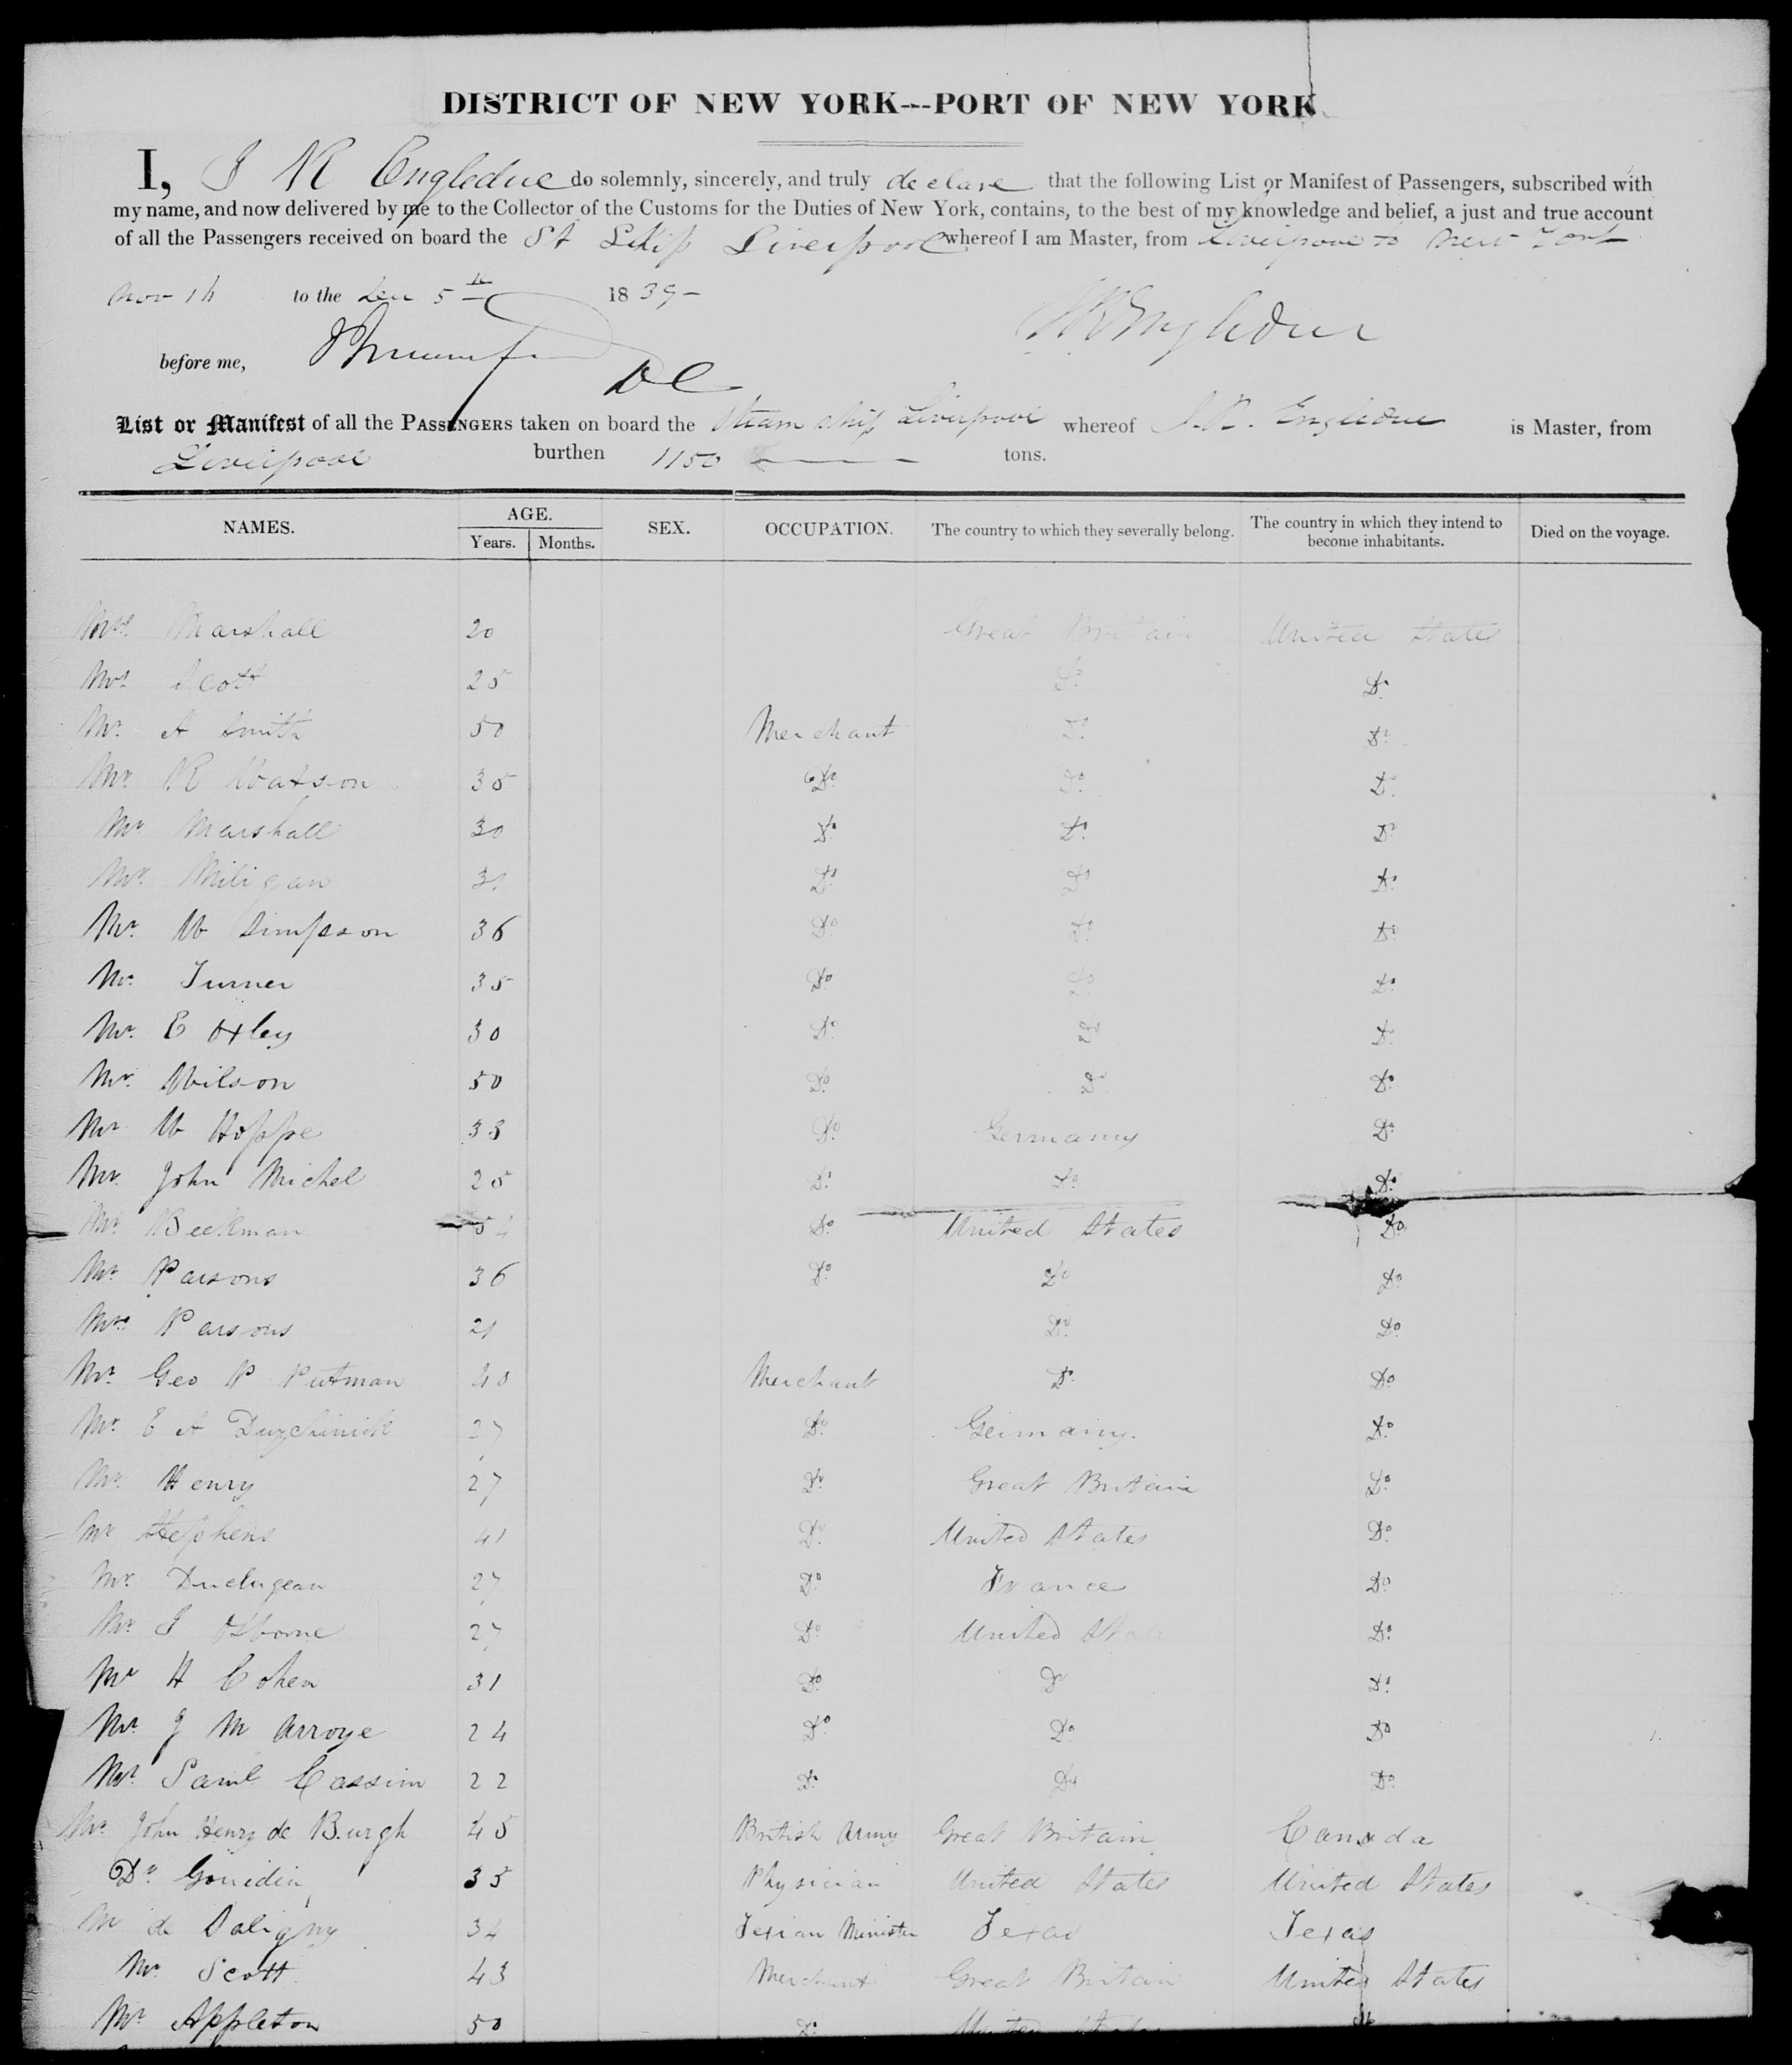 DISTRICT OF NEW YORK---PORT OF NEW YORK
I, J R Engledue do solemnly, sincerely, and truly declare that the following List or Manifest of Passengers, subscribed with
my name, and now delivered by me to the Collector of the Customs for the Duties of New York, contains, to the best of my knowledge and belief, a just and true account
of all the Passengers received on board the St Ship Liverpool whereof I am Master, from Liverpool to New York
Nov 16 to the Dec 5th 1839-
J R Engledue
before me, DC
List or Manifest of all the PASSENGERS taken on board the Steam Ship Liverpool whereof J.R. Engledue is Master, from
Liverpool burthen 1150 tons.
NAMES. AGE. Years. Months. SEX. OCCUPATION. The country to which they severally belong. The country in which they intend to become inhabitants. Died on the voyage.
Mrs Marshall 20 Great Britain United States
Mrs Scott 25 Do Do
Mr. A Smith 50 Merchant Do Do
Mr R Watson 35 Do Do Do
Mr Marshall 30 Do Do Do
Mr. Miligan 31 Do Do Do
Mr. W Simpson 36 Do Do Do
Mr. Turner 35 Do Do Do
Mr. E Oxley 30 Do Do Do
Mr. Wilson 50 Do Do Do
Mr W Hoppe 33 Do Germany Do
Mr. John Michel 25 Do Do Do
Mr. Beekman 54 Do United States Do
Mr. Parsons 36 Do Do Do
Mrs Parsons 21 Do Do
Mr. Geo P Putman 40 Merchant Do Do
Mr. E A Duychinick 27 Do Germany. Do
Mr. Henry 27 Do Great Britain Do
Mr Stephens 41 Do United States Do
Mr. Duclugean 27 Do France Do
Mr. J Osborne 27 Do United States Do
Mr H Cohen 31 Do Do Do
Mr. J M Arroye 24 Do Do Do
Mr. Saml Cassim 22 Do Do Do
Mr. John Henry de Burgh 45 British Army Great Britain Canada
Dr Gouidin 35 Physician United States United States
M de Saligny 34 Texian Minister Texas Texas
Mr. Scott 43 Merchant Great Britain United States
Mr. Appleton 50 Do United States